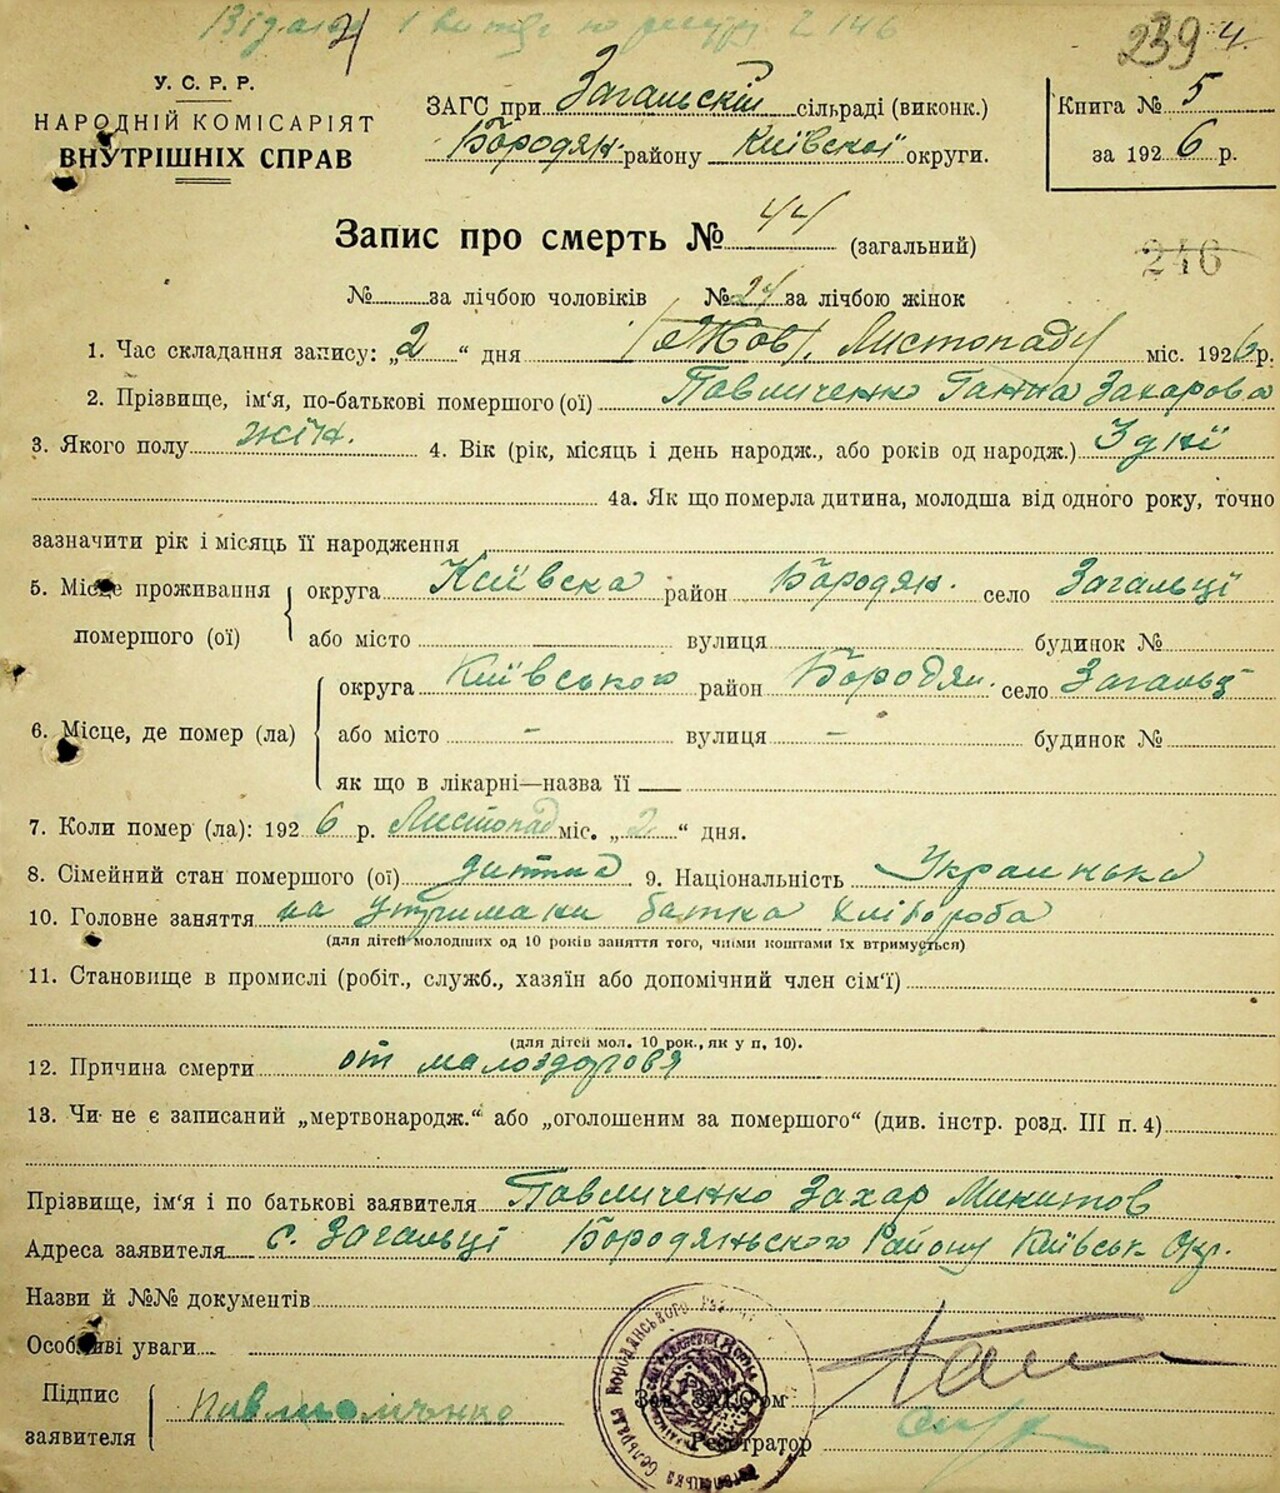 1
239 4.
У. С. Р. Р.
НАРОДНІЙ КОМІСАРІЯТ
ВНУТРІШНІХ СПРАВ
ЗАГС при Загальскій сільраді (виконк.)
Бородян. району Київскої округи.
Книга № 5
за 1926 р.
Запис про смерть № 44 (загальний)
246
№ за лічбою чоловіків № 24 за лічбою жінок
1. Час складання запису: „2“ дня (Жов). Листопаду міс. 1926 р.
2. Прізвище, ім‘я, по-батькові помершого (ої) Павличенко Ганна Захарова
3. Якого полу жін. 4. Вік (рік, місяць і день народж., або років од народж.) 3 дні
4а. Як що померла дитина, молодша від одного року, точно
зазначити рік і місяць її народження
5. Місце проживання помершого (ої) округа Київска район Бородян. село Загальці
або місто вулиця будинок №
6. Місце, де помер (ла) округа Київського район Бородян. село Загальц
або місто - вулиця - будинок №
як що в лікарні—назва її
7. Коли помер (ла): 1926 р. Листопад міс. „2.“ дня.
8. Сімейний стан помершого (ої) дитина 9. Національність Украинька
10. Головне заняття на утримани батка хлібороба
(для дітей молодших од 10 років заняття того, чиїми коштами їх втримується)
11. Становище в промислі (робіт., служб., хазяїн або допомічний член сім‘ї)
(для дітей мол. 10 рок., як у п. 10).
12. Причина смерти от малоздоровя
13. Чи не є записаний „мертвонародж.“ або „оголошеним за помершого“ (див. інстр. розд. III п. 4)
Прізвище, ім‘я і по батькові заявителя Павличенко Захар Микитов
Адреса заявителя с. Загальці Бородяньского Району Київськ Окр.
Назви й №№ документів
Особливі уваги
Підпис заявителя Павличенко
Зав. ЗАГС‘ом
Реєстратор
Сельрада Бородянського